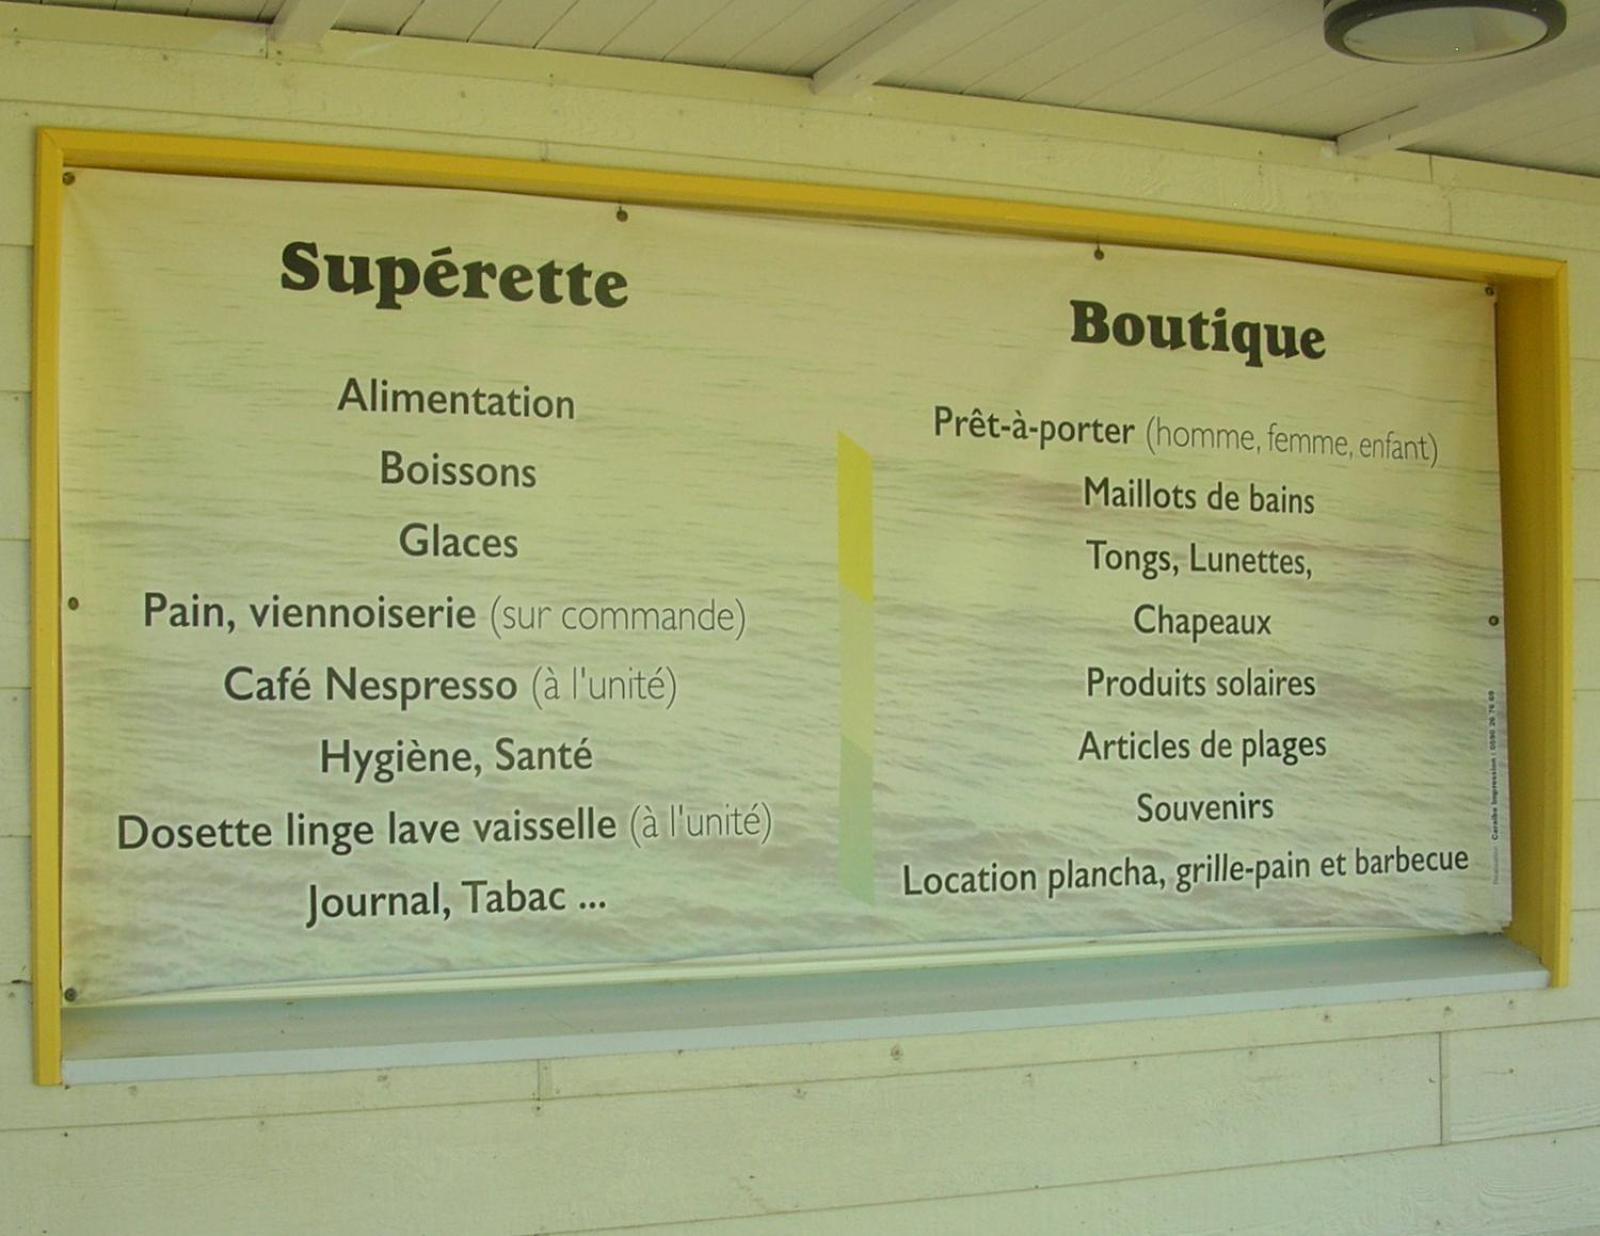 Supérette
Alimentation
Boissons
Glaces
Pain, viennoiserie (sur commande)
Café Nespresso (à l'unité)
Hygiène, Santé
Dosette linge lave vaisselle (à l'unité)
Journal, Tabac ...
Boutique
Prêt-à-porter (homme, femme, enfant)
Maillots de bains
Tongs, Lunettes,
Chapeaux
Produits solaires
Articles de plages
Souvenirs
Location plancha, grille-pain et barbecue
Caraïbe Impression : 0590 26 76 69